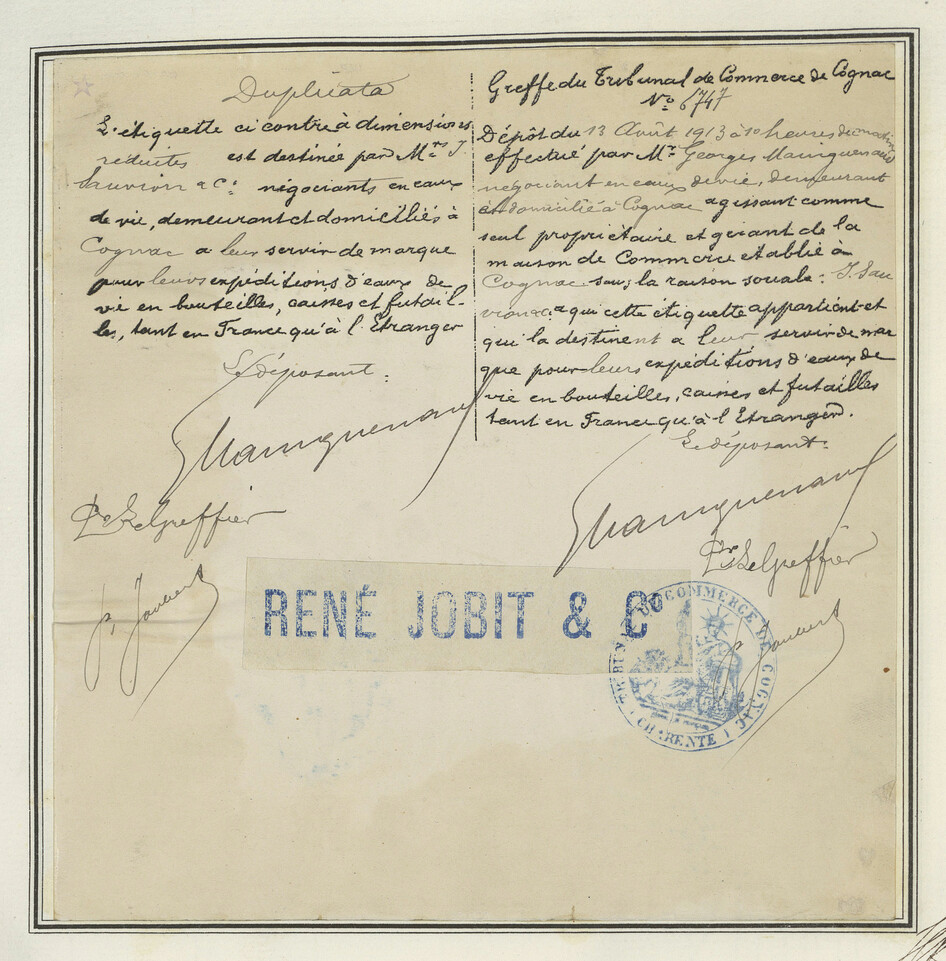 Duplicata
L'étiquette ci contre à dimensions
réduites est destinée par Mrs J.
Sauvion & Cie négociants en eaux
de vie, demeurant et domiciliés à
Cognac a leur servir de marque
pour leurs expéditions d'eaux de
vie en bouteilles, caisses et futail-
les, tant en France qu'à l'Etranger
Le déposant:
GMainguenaud
Pr Le Greffier
P. Joubert
Greffe du Tribunal de Commerce de Cognac
No 6747
Dépôt du 13 Août 1913 à 10 heures du matin
effectué par Mr Georges Mainguenaud
négociant en eaux de vie, demeurant
et domicilié à Cognac agissant comme
seul propriétaire et gérant de la
maison de Commerce etablie à
Cognac sous la raison sociale: J. Sau
vion & Cie a qui cette étiquette appartient et
qui la destinent a leur servir de mar
que pour leurs expéditions d'eaux de
vie en bouteilles, caisses et futailles
tant en France qu'à l'Etranger.
Le déposant:
GMainguenaud
Pr Le Greffier
P. Joubert
RENÉ JOBIT & Co
TRIBUNAL DU COMMERCE DE COGNAC
(CHARENTE)